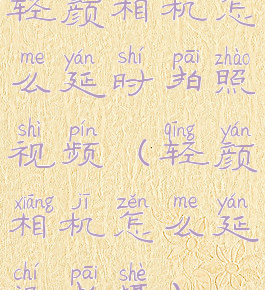 轻颜相机怎
me yán shí pāi zhào
么延时拍照
shì pín qīng yán
视频(轻颜
xiāng jī zěn me yán
相机怎么延
chí pāi shè